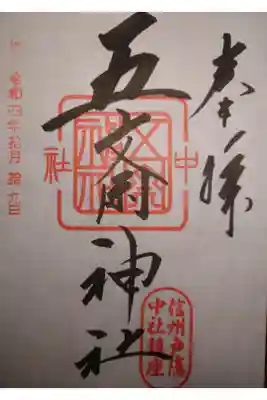 奉拝
五斎神社
中社
信州戸隠
中社鎮座
令和四年拾月拾九日